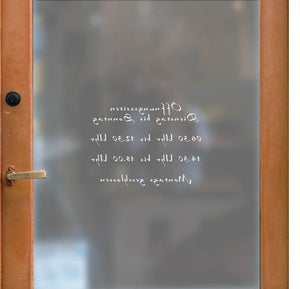 Öffnungszeiten
Dienstag bis Sonntag
06.30 Uhr bis 12.30 Uhr
14.30 Uhr bis 18.00 Uhr
Montags geschlossen